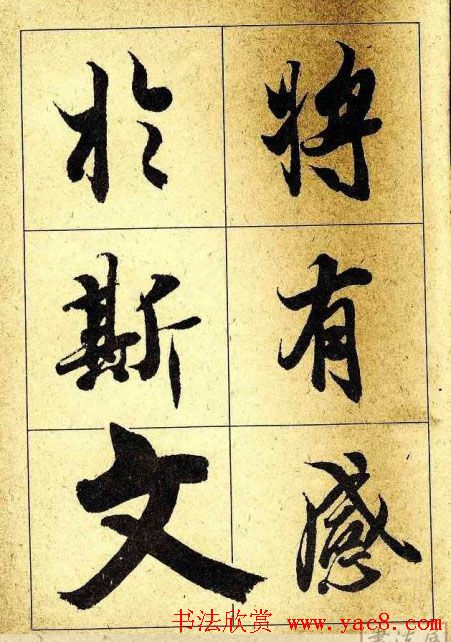 将有感
於斯文
书法欣赏 www.yac8.com